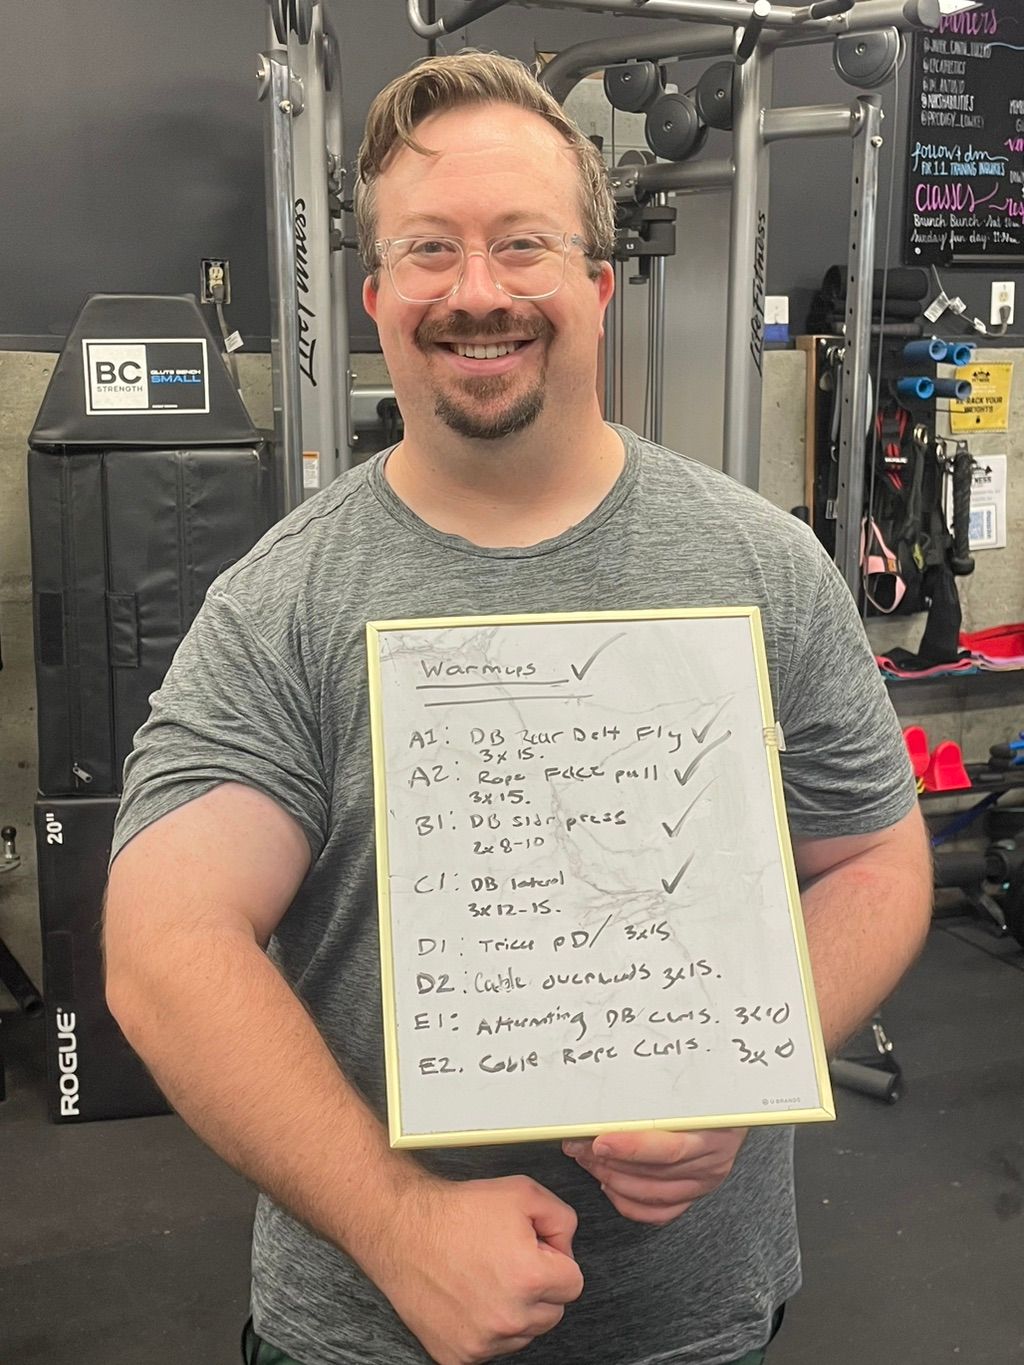 @JAVIER_CANTU_LUCERO
@NIKSHABILITIES
@PRODIGY_LOWKEY
follow + dm
FOR 1:1 TRAINING INQUIRIES
classes
Brunch Bunch · Sat
Sunday fun day ·
LifeFitness
LifeFitness
BC
STRENGTH
GLUTE BENCH
SMALL
RE-RACK YOUR
WEIGHTS
20"
ROGUE
Warmups ✓
A1: DB Rear Delt Fly ✓
3x15.
A2: Rope Face pull ✓
3x15.
B1: DB press ✓
2x8-10
C1: DB lateral ✓
3x12-15.
D1: Tricep PD/ 3x15
D2: Cable overheads 3x15.
E1: Alternating DB Curls. 3x10
E2. Cable Rope Curls. 3x
U BRANDS